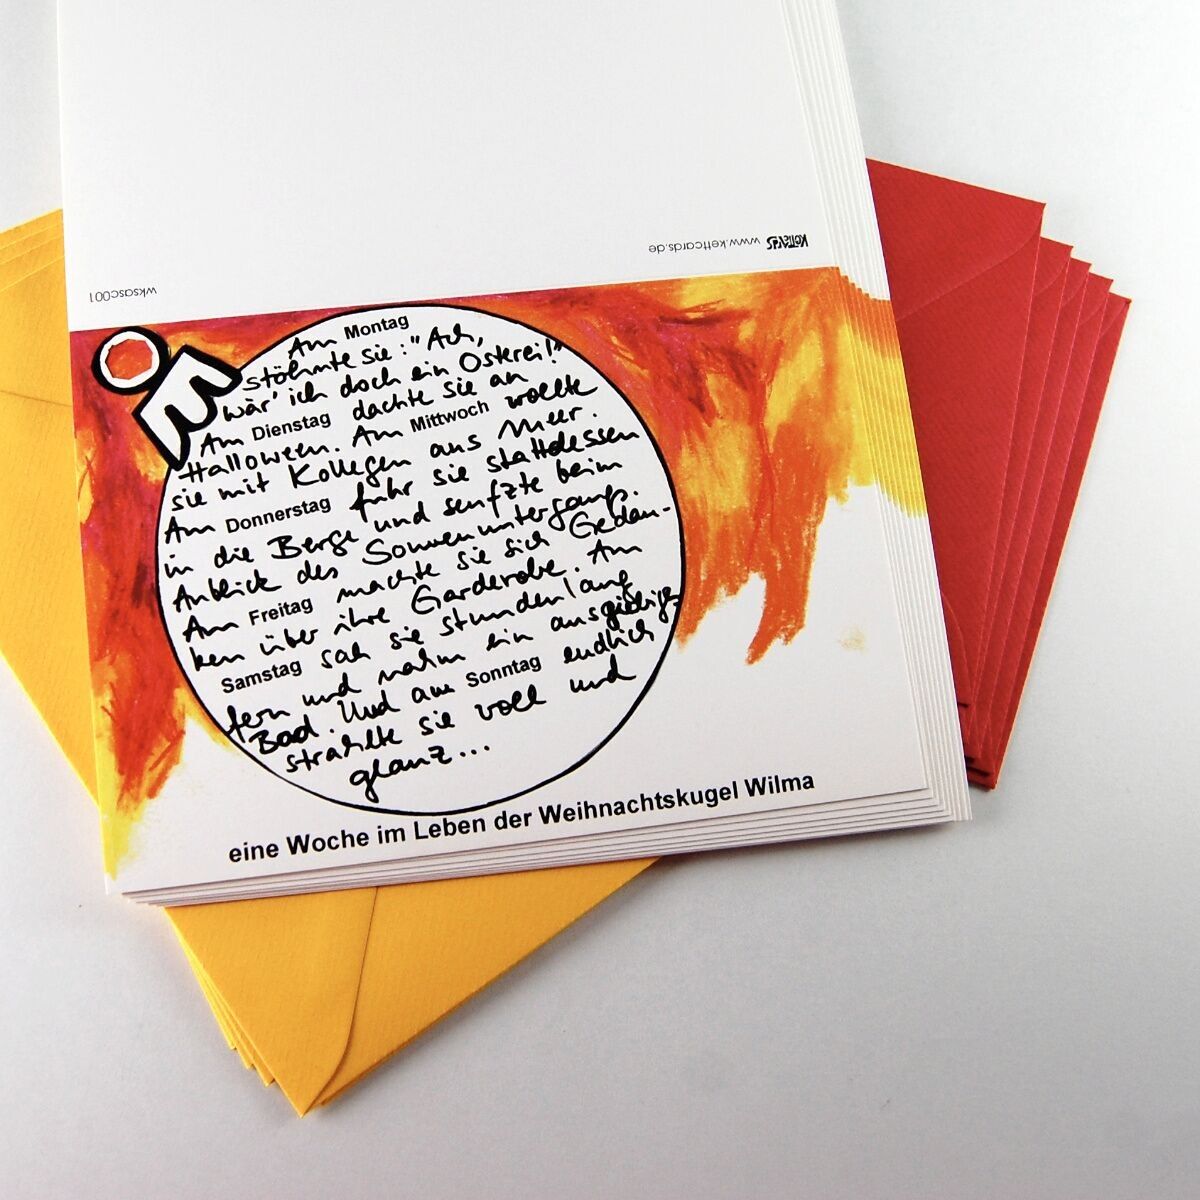 KettCards www.kettcards.de
wksasc001
Am Montag
stöhnte sie: "Ach,
wär' ich doch ein Osterei!"
Am Dienstag dachte sie an
Halloween. Am Mittwoch wollte
sie mit Kollegen ans Meer.
Am Donnerstag fuhr sie stattdessen
in die Berge und seufzte beim
Anblick des Sonnenuntergangs.
Am Freitag machte sie sich Gedan-
ken über ihre Garderobe. Am
Samstag sah sie stundenlang
fern und nahm ein ausgiebiges
Bad. Und am Sonntag endlich
strahlte sie voll und
glanz...
eine Woche im Leben der Weihnachtskugel Wilma